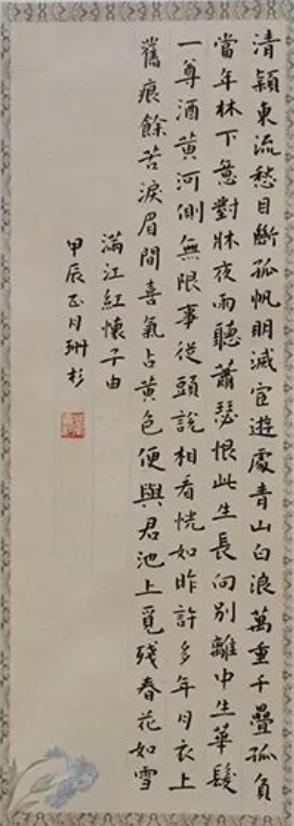 清潁東流愁目斷孤帆明滅宦遊處青山白浪萬重千疊孤負
當年林下意對牀夜雨聽蕭瑟恨此生長向別離中生華髮
一尊酒黃河側無限事從頭說相看恍如昨許多年月衣上
舊痕餘苦淚眉間喜氣占黃色便與君池上覓殘春花如雪
滿江紅懷子由
甲辰正月珊杉